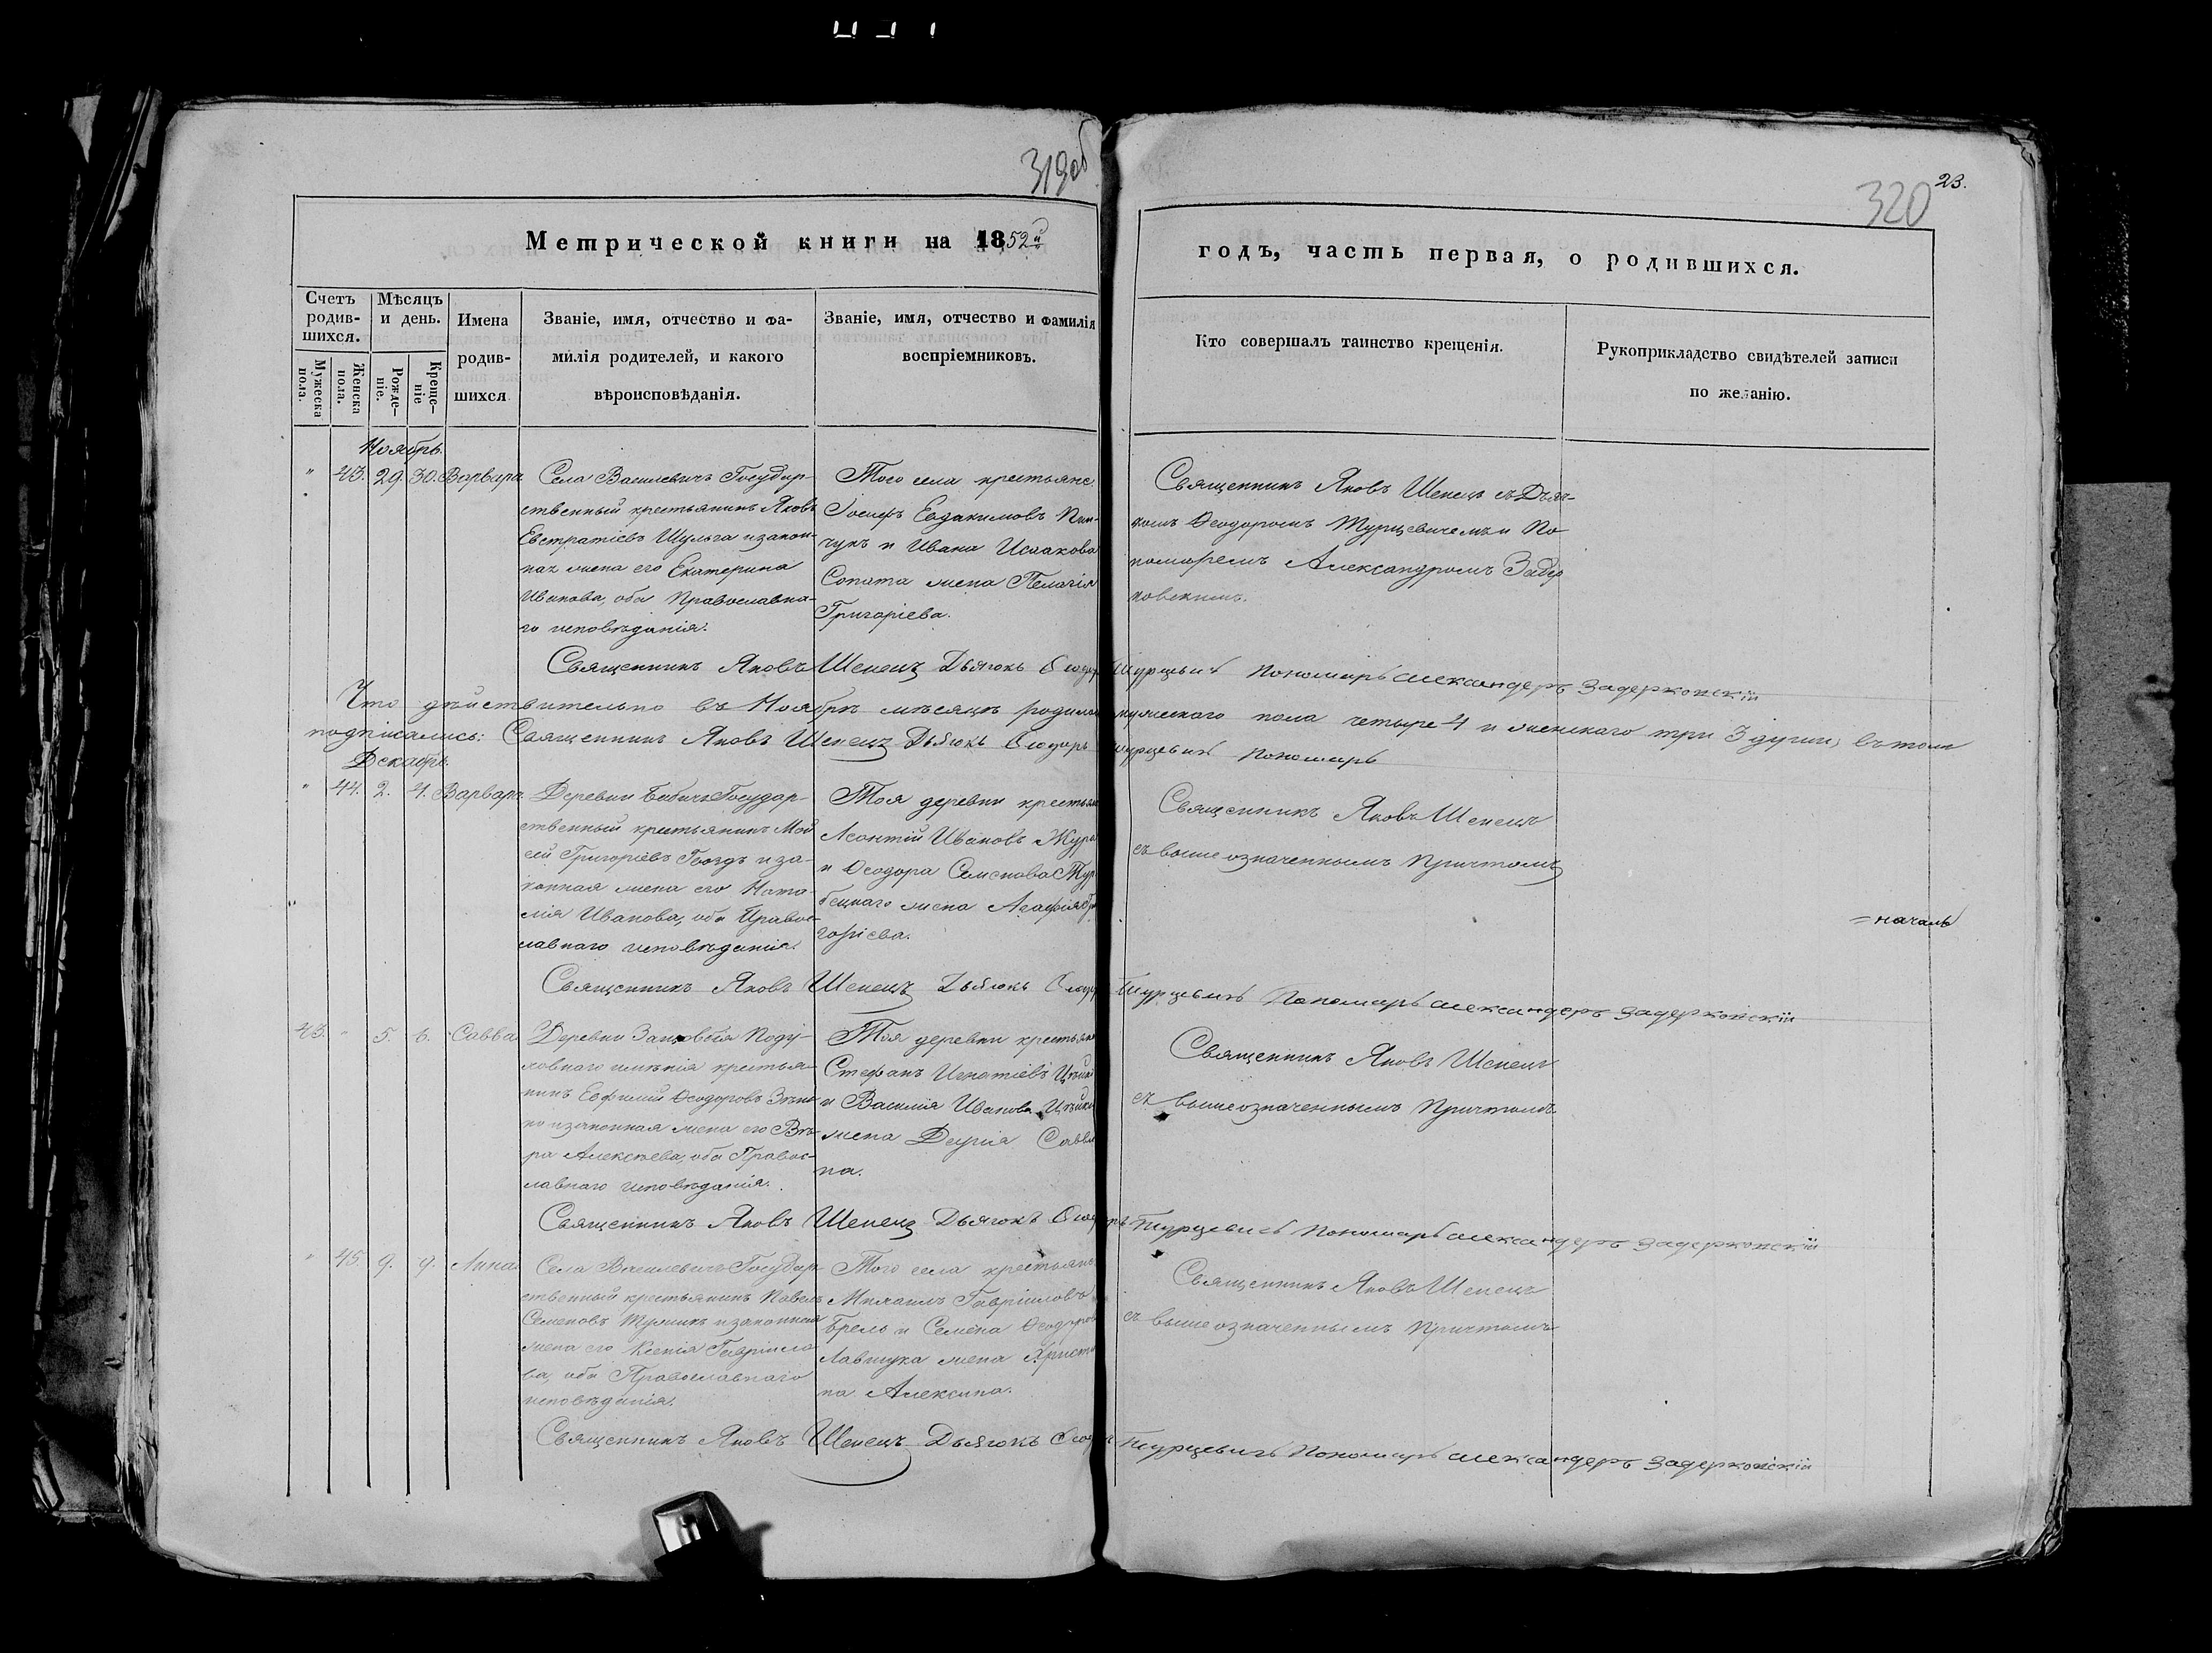 319об
320
23.
Метрической книги на 1852й
годъ, часть первая, о родившихся.
Счетъ родившихся.
Мужеска пола.
Женска пола.
Мѣсяцъ и день.
Рожденіе.
Крещеніе
Имена родившихся
Званіе, имя, отчество и фамилія родителей, и какого вѣроисповѣданія.
Званіе, имя, отчество и фамилія воспріемниковъ.
Кто совершалъ таинство крещенія.
Рукоприкладство свидѣтелей записи по желанію.
Ноябрь.
" 43. 29. 30. Варвара
Села Василевичъ Государ-
ственный крестьянинъ Яковъ
Евстратіевъ Шульга и закон-
ная жена его Екатерина
Иванова, оба Православна-
го исповѣданія.
Того села крестьяне
Іосифъ Евдакимовъ Пин-
чукъ и Ивана Исаакова
Сопата жена Пелагія
Григоріева.
Священникъ Яковъ Шепецъ съ Дьяч-
комъ Ѳеодоромъ Турцевичемъ и По
номаремъ Александромъ Задер
ковскимъ.
Священникъ Яковъ Шепецъ Дьячокъ Ѳеодоръ Турцевичъ Пономарь Александеръ Задерковскій
Что дѣйствительно въ Ноябрѣ мѣсяцѣ родилось мужескаго пола четыре 4 и женскаго три 3 души, въ томъ
подписались: Священникъ Яковъ Шепецъ Дьячокъ Ѳеодоръ Турцевичъ Пономарь
Декабрь.
" 44. 2. 4. Варвара
Деревни Бабичъ Государ-
ственный крестьянинъ Мой
сей Григоріевъ Гвоздъ и за-
конная жена его Ната-
лія Иванова, оба Правос-
лавнаго исповѣданія.
Тоя деревни крестьяне
Леонтій Ивановъ
и Ѳеодора Семенова
бецкаго жена Агафія Гри
горіева.
Священникъ Яковъ Шепецъ
съ вышеозначеннымъ Причтомъ
=началъ
Священникъ Яковъ Шепецъ Дьячокъ Ѳеодоръ Турцевичъ Пономарь Александеръ Задерковскій
45. " 5. 6. Савва
Деревни
ловнаго имѣнія крестья-
нинъ Евфимій Ѳеодоровъ
но и законная жена его Вѣ-
ра Алексѣева, оба Правос-
лавнаго исповѣданія.
Тоя деревни крестьяне
Стефанъ Игнатіевъ
и Василія Иванова
жена Дарія Савви
на.
Священникъ Яковъ Шепецъ
съ вышеозначеннымъ Причтомъ
Священникъ Яковъ Шепецъ Дьячокъ Ѳеодоръ Турцевичъ Пономарь Александеръ Задерковскій
" 45. 9. 9. Анна
Села Василевичъ Государ
ственный крестьянинъ Павелъ
Семеновъ и законная
жена его Ксенія Гавриило
ва, оба Православнаго
исповѣданія.
Того села крестьяне
Михаилъ Гавріиловъ
Брель и Семена Ѳеодорова
Лавшука жена Христи
на Алексина.
Священникъ Яковъ Шепецъ
съ вышеозначеннымъ Причтомъ
Священникъ Яковъ Шепецъ Дьячокъ Ѳеодоръ Турцевичъ Пономарь Александеръ Задерковскій